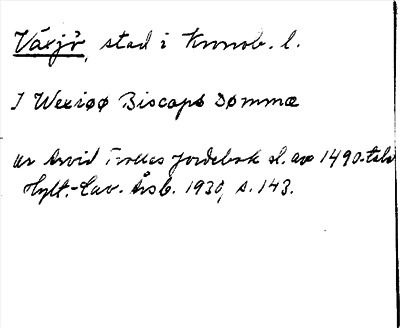 Växjö, stad i Kronob. l.
I Wexiøø Biscops Dømmæ
ur Arvid Trolles jordebok sl. av 1490-talet
Hylt.-Cav. Årsb. 1930, s. 143.